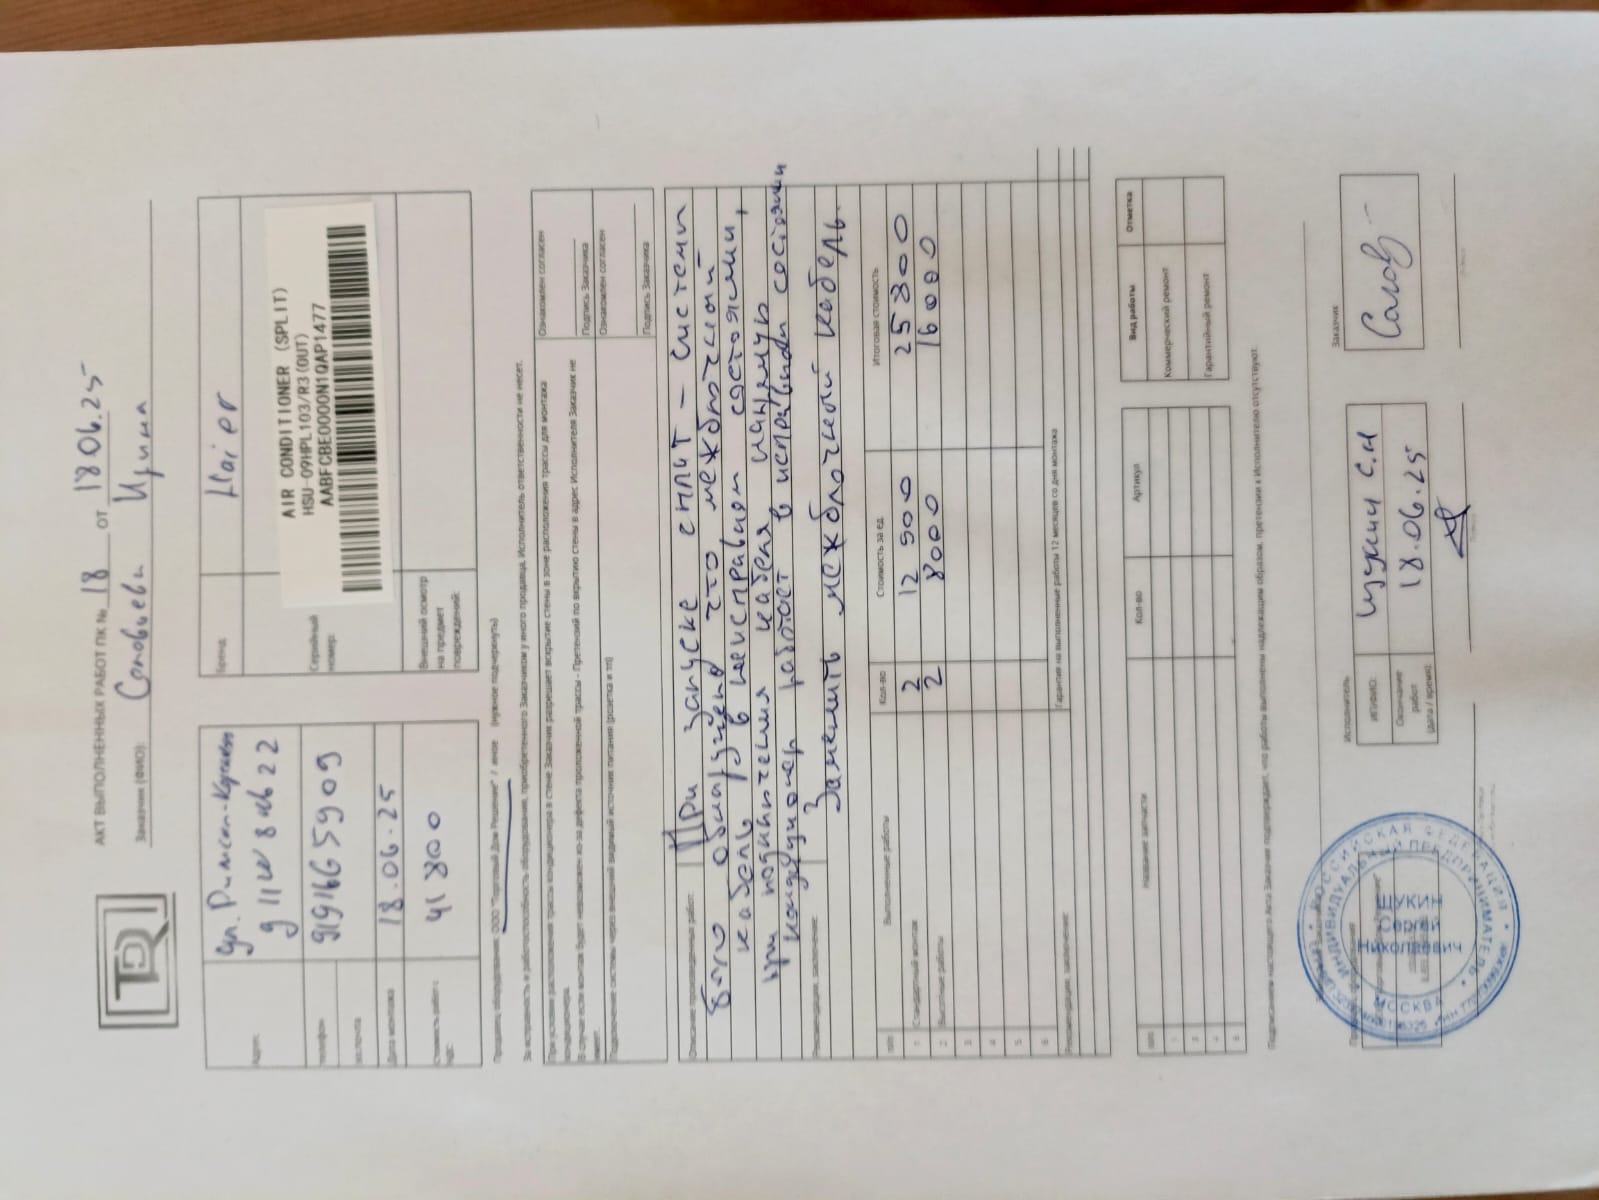 АКТ ВЫПОЛНЕННЫХ РАБОТ ПК № 18 от 18.06.25
Заказчик (ФИО): Соловьева Ирина
Адрес: ул. Римского-Корсакова
д 11
телефон 9191665909
эл.почта
Дата монтажа 18.06.25
Стоимость работ с НДС: 41 800
Бренд Haier
Серийный номер:
AIR CONDITIONER (SPLIT)
HSU-09HPL103/R3(OUT)
AABFCBE0000N1QAP1477
Внешний осмотр на предмет повреждений:
Продавец оборудования: ООО "Торговый Дом Решение" / иное (нужное подчеркнуть)
За исправность и работоспособность оборудования, приобретенного Заказчиком у иного продавца, Исполнитель ответственности не несет.
При условии расположения трассы кондиционера в стене Заказчик разрешает вскрытие стены в зоне расположения трассы для монтажа
кондиционера.
В случае если монтаж будет невозможен из-за дефекта проложенной трассы - Претензий по вскрытию стены в адрес Исполнителя Заказчик не
имеет.
Ознакомлен согласен
Подпись Заказчика
Подключение системы через внешний видимый источник питания (розетка и тп)
Ознакомлен согласен
Подпись Заказчика
Описание произведенных работ: При запуске сплит-системы
было обнаружено что межблочный
кабель в неисправном состоянии,
при подключения кабеля
кондиционер работает в исправном состоянии
Рекомендации, заключение: Заменить межблочный кабель.
п/п Выполненные работы Кол-во Стоимость за ед. Итоговая стоимость
1 Стандартный монтаж 2 12 900 25 800
2 Высотные работы 2 8000 16000
3
4
5
6
Гарантия на выполненные работы 12 месяцев со дня монтажа
Рекомендации, заключение
п/п Название запчасти Кол-во Артикул
1
2
Вид работы Отметка
Коммерческий ремонт
Гарантийный ремонт
Подписанием настоящего Акта Заказчик подтверждает, что работы выполнены надлежащим образом, претензии к Исполнителю отсутствуют.
Исполнитель
ИП/ФИО: Щукин С.Н
Окончание работ (дата / время) 18.06.25
Заказчик
РОССИЙСКАЯ ФЕДЕРАЦИЯ
ИНДИВИДУАЛЬНЫЙ ПРЕДПРИНИМАТЕЛЬ
ЩУКИН
Сергей
Николаевич
МОСКВА